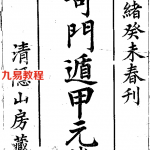 緒癸未春刊
奇門遁甲元
清隱山房藏
九易教程